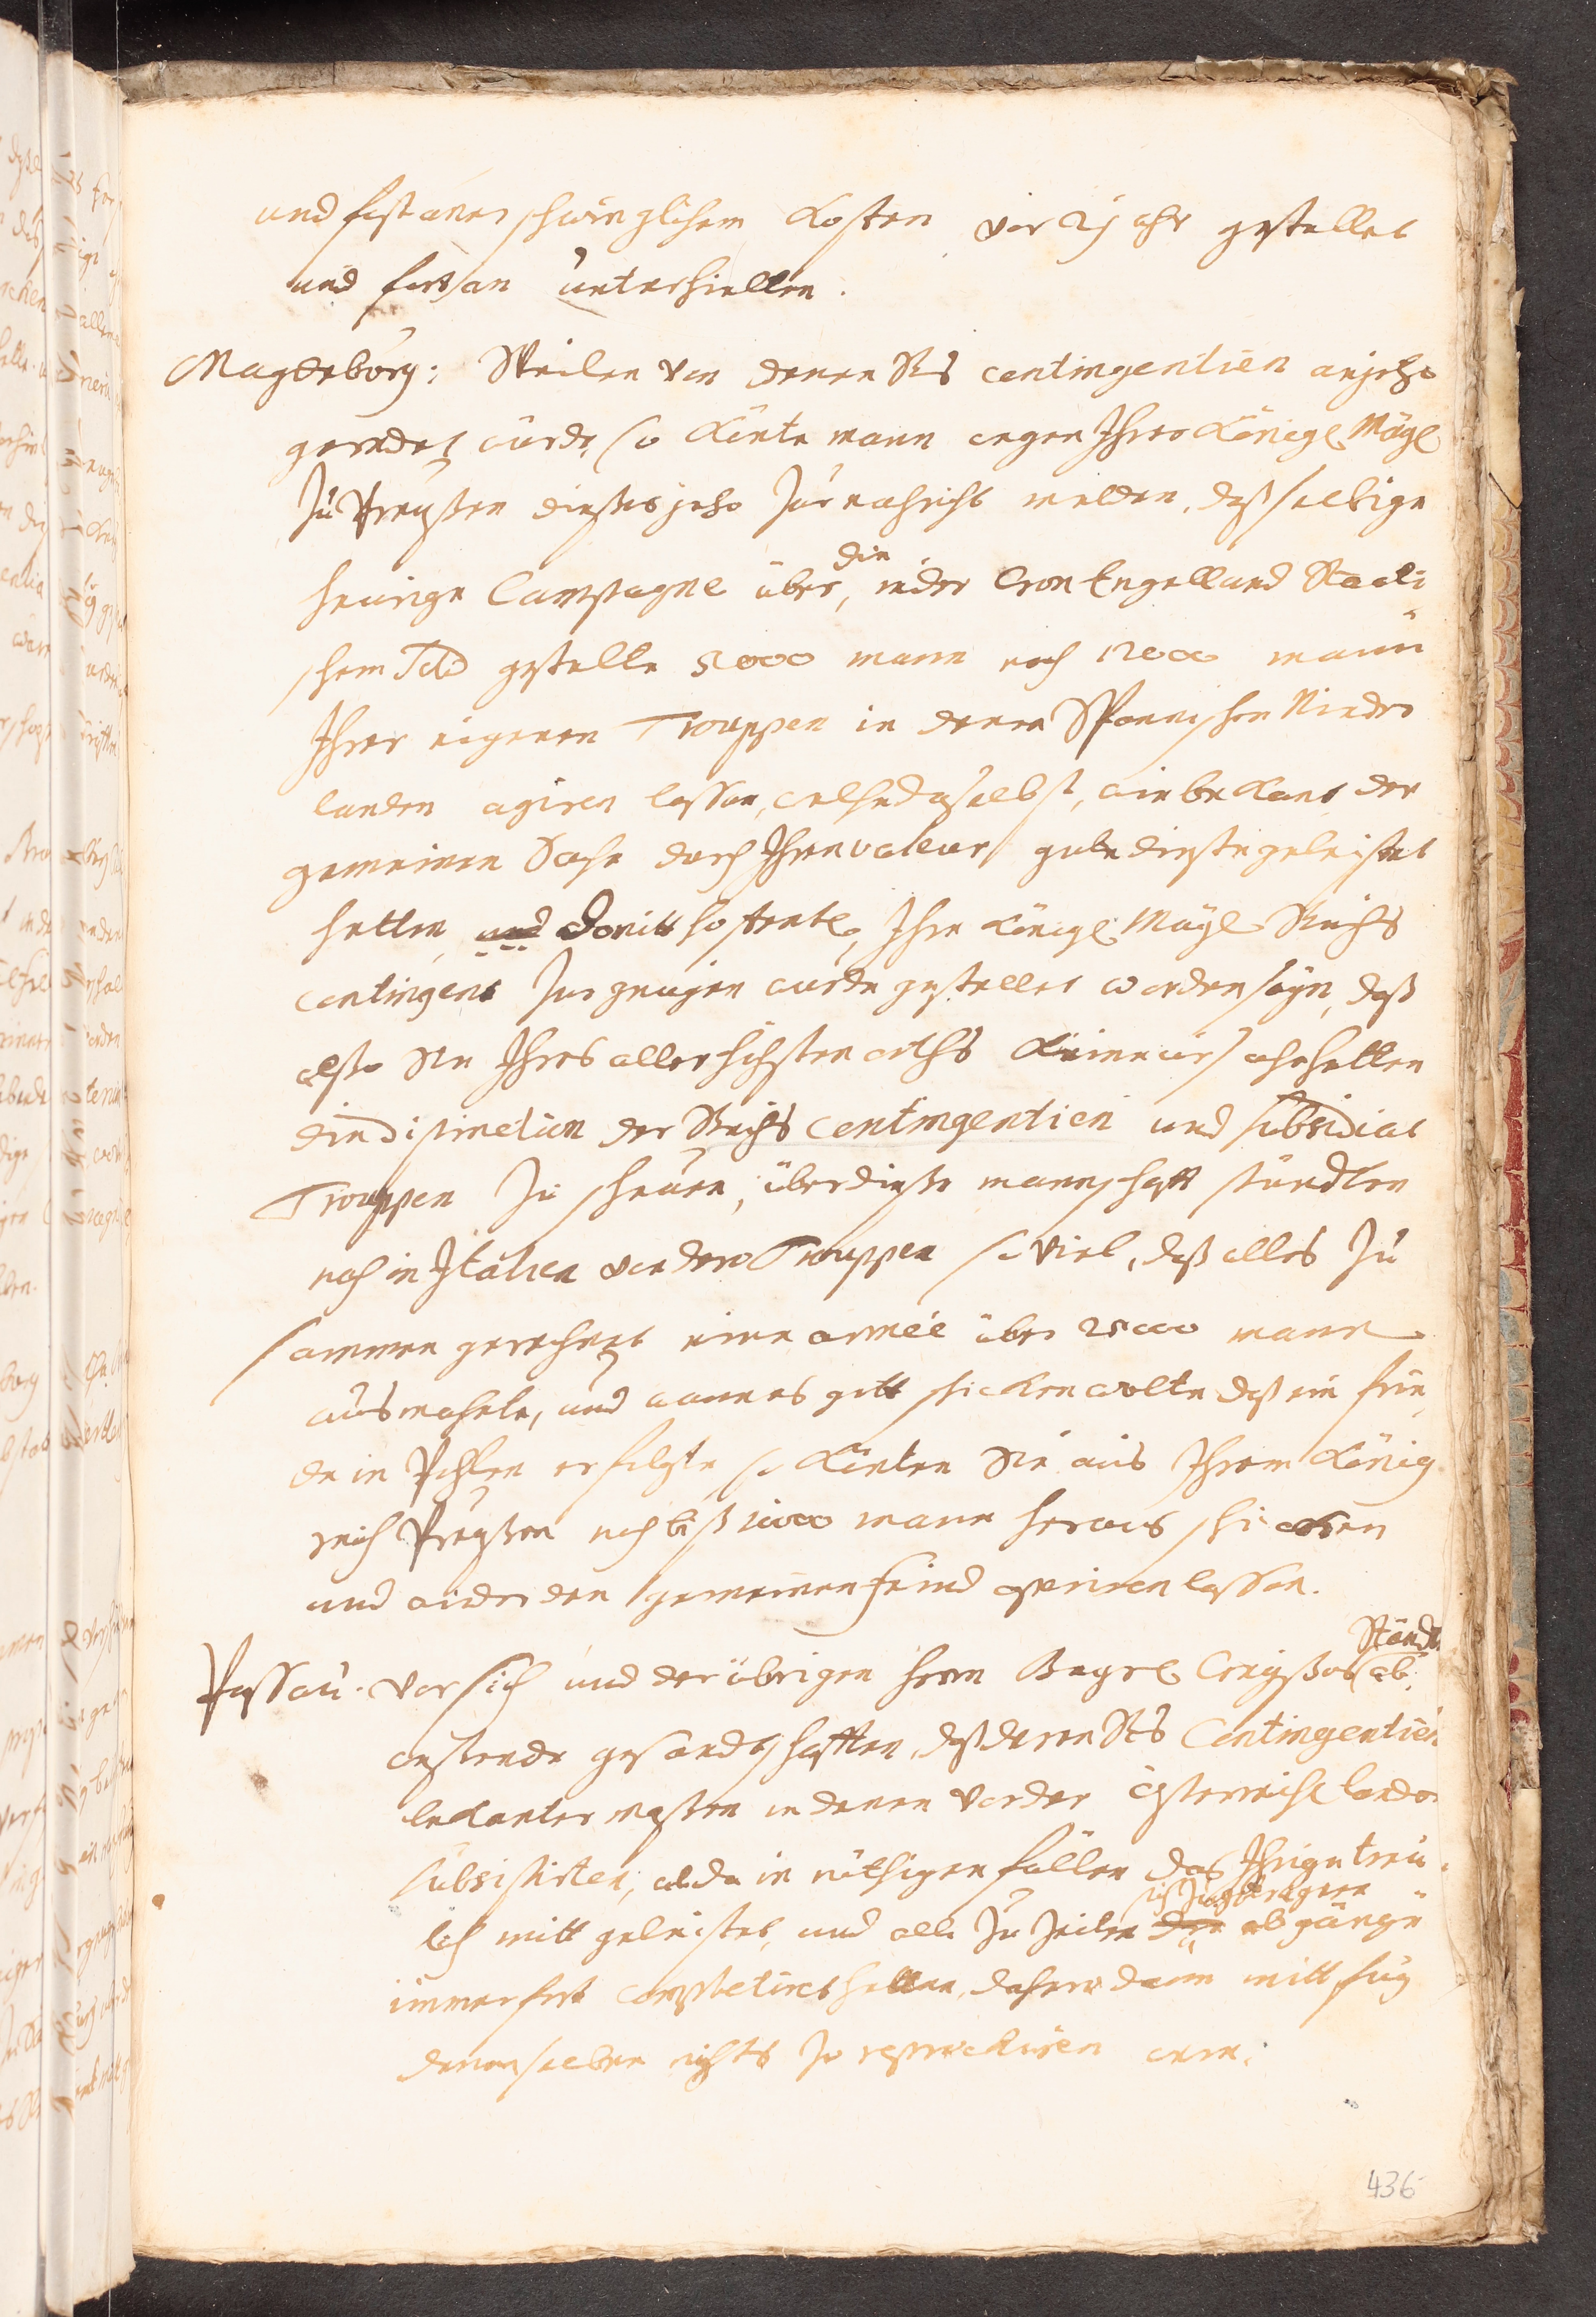 und fast unerschwinglichem Kosten vor 2 jahr gestellet
und fortan unterhielten.
Magdeburg: Weilen von denen Rs contingentien anjezo
geredet würde, so könte mann wegen Ihrer Königl. Mayt.
zu Preußen dießes jezo zur nachricht melden, daß selbige
heurige Campagne über die, in der Cron Engelland Staati-
schem Sold gestelte 5000 mann noch 12000 mann
Ihrer eigenen Trouppen in denen Spannischen Nieder
landen agiren lassen, welche daselbst, wie bekant, der
gemeinen Sache durch Ihren valeur gute dienste geleistet
hetten, und damitt hoffentl. Ihre Königl. Mayt. Reichs
contingent zur genügen würde gestellet worden seyn, daß
alßo Sie Ihres allerhöchsten orths keine ursache hetten
die distinction der Reichs contingentien und subsidial
Trouppen zu scheuen, über dieße mannschafft stündten
noch in Italien von dero Trouppen so viel, daß alles zu
sammen gerechnet eine armée über 25000 mann
ausmachete, und wann es gott schicken wolte daß ein frie-
de in Pohlen erfolgte, so könten Sie aus Ihrem König
reich Preußen noch biß 10000 mann heraus schicken
und wider den gemeinen feind agieren lassen.
Passau. Vor sich und der übrigen herrn Bayrl. Crayßes Stände ab-
westende gesandschafften, daß deren Rs Contingentien
bekanter maßen in denen Vorder österreichl. landen
subsistirten, alda in nöthigen fällen das Ihrige treu-
lich mitt geleistet, und alle zu zeiten der sich zugetragene abgänge
immerfort completiret hetten, dahero dann mitt fug
denenselben nichts zu reprochiren were.
436